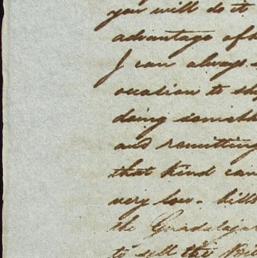 you will do it
advantage of
I can always
occasion to
doing
and remitting
that kind can
very low. bills
the Guadalajar
to sell the